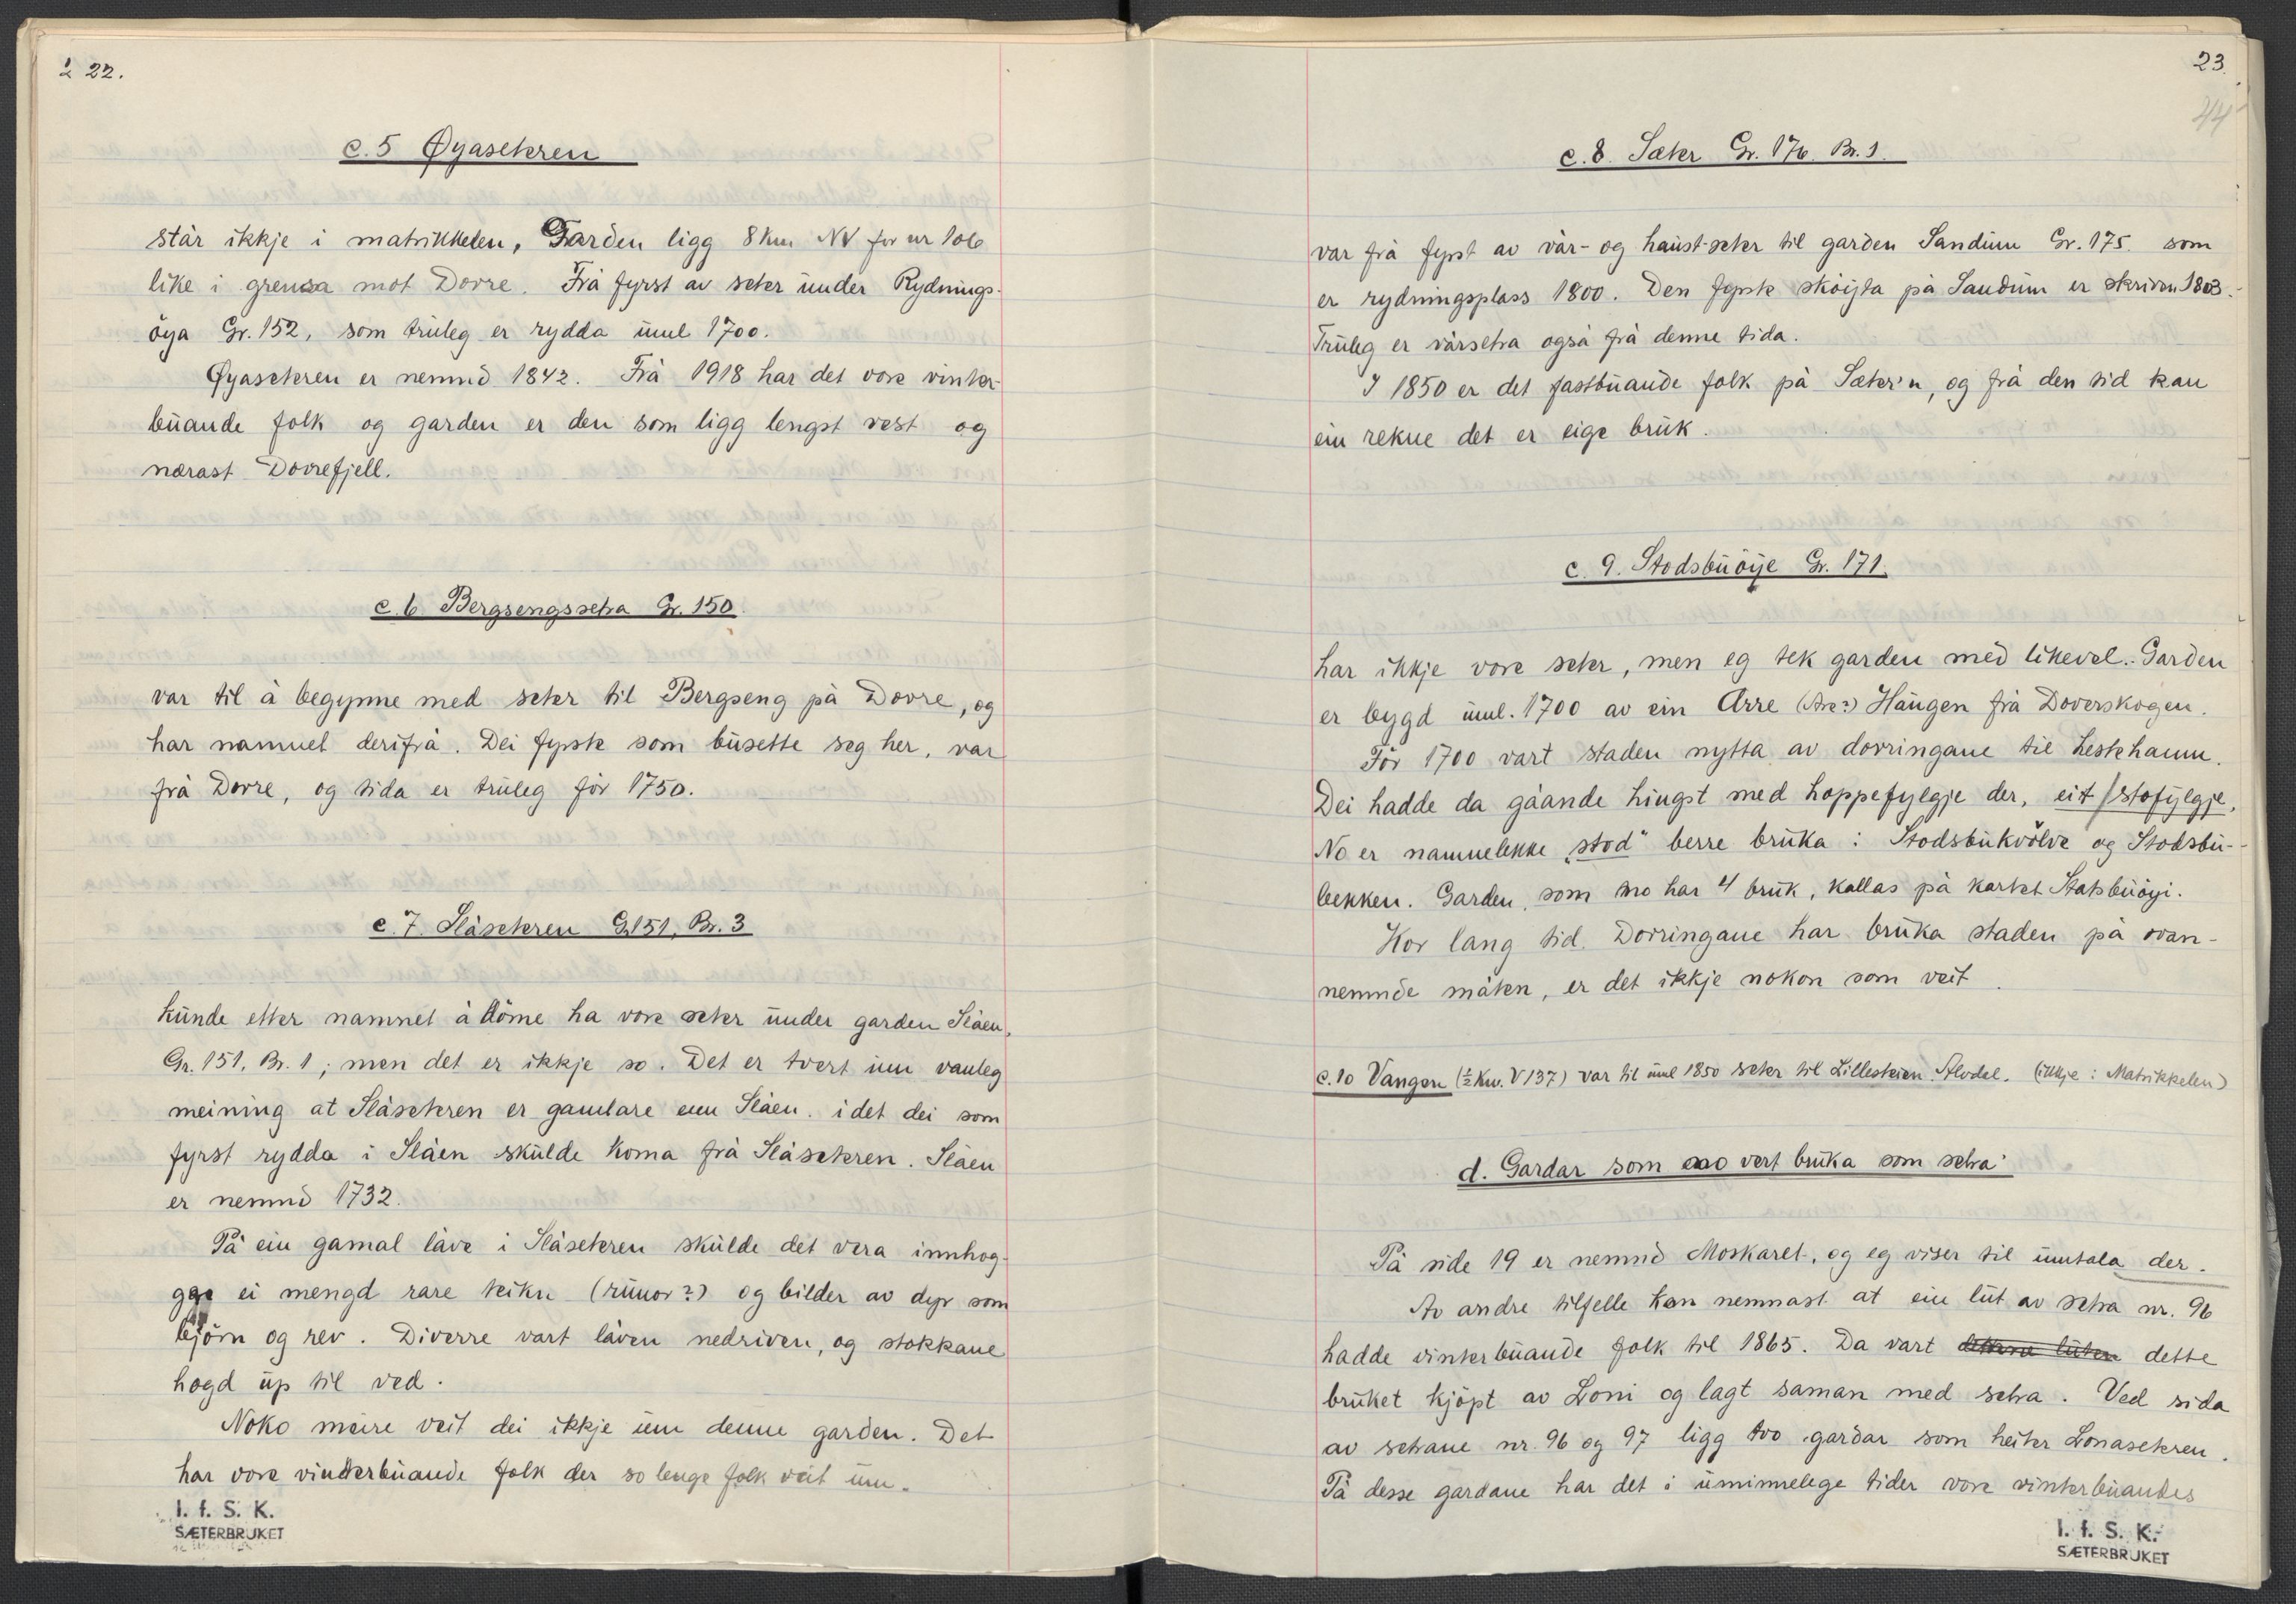 22.
c. 5 Øyaseteren
står ikkje i matrikkelen, Garden ligg 8 km NV for nr 106
like i grensa mot Dovre. Frå fyrst av seter under Rydnings-
öya Gr. 152, som truleg er rydda uml 1700.
Øyaseteren er nemnd 1842. Frå 1918 har det vore vinter-
buande folk og garden er den som ligg lengst vest og
nærast Dovrefjell.
c. 6 Bergsengssetra Gr. 150.
var til å begynne med seter til Bergseng på Dovre, og
har namnet derifrå. Dei fyrste som busette seg her, var
frå Dovre, og tida er truleg för 1750.
c. 7. Slåseteren G. 151, Br. 3
kunde etter namnet å döme ha vore seter under garden Slåen,
Gr. 151, Br. 1; men det er ikkje so. Det er tvert um vanleg
meining at Slåseteren er gamlare enn Slåen. idet dei som
fyrst rydda i Slåen skulde koma frå Slåseteren. Slåen
er nemnd 1732.
På ein gamal låve i Slåseteren skulde det vera innhog-
ge ei mengd rare teikn (runor?) og bilder av dyr som
björn og rev. Diverre vart låven nedriven, og stokkane
hogd up til ved.
Noko meire veit dei ikkje um denne garden. Det
har vore vinterbuande folk der so lenge folk veit um.
I. f. S. K.
SÆTERBRUKET
23.
44
c. 8. Sæter Gr. 176. Br. 1.
var frå fyrst av vår- og haust-seter til garden Sandum Gr. 175. som
er rydningsplass 1800. Den fyrste sköyta på Sandum er skriven 1803.
Truleg er vårsetra også frå denne tida.
I 1850 er det fastbuande folk på Sæter'n, og frå den tid kan
ein rekne det er eige bruk.
c. 9. Stodsbuöye Gr. 171.
har ikkje vore seter, men eg tek garden med likevel. Garden
er bygd uml. 1700 av ein Arre (Are?) Haugen frå Doverskogen.
För 1700 vart staden nytta av dovringane til hestehamn.
Dei hadde da gåande hingst med hoppefylgje der, eit stofylgje.
No er namnelekke „stod" berre bruka i Stodsbukvölve og Stodsbu-
bekken. Garden, som no har 4 bruk, kallas på kartet Statsbuöyi.
Kor lang tid Dovringane har bruka staden på ovan-
nemnde måten, er det ikkje nokon som veit.
c. 10 Vangen (½ km. V 137) var til uml 1850 seter til Lillesteien Alvdal. (ikkje i Matrikkelen)
d. Gardar som no vert bruka som setra
På side 19 er nemnd Moskaret, og eg viser til umtala der.
Av andre tilfelle kan nemnast at ein lut av setra nr. 96
hadde vinterbuande folk til 1865. Da vart denne luten dette
bruket kjöpt av Loni og lagt saman med setra. Ved sida
av setrane nr. 96 og 97 ligg tvo gardar som heiter Lonaseteren.
På desse gardane har det i uminnelege tider vore vinterbuandes
I. f. S. K.
SÆTERBRUKET